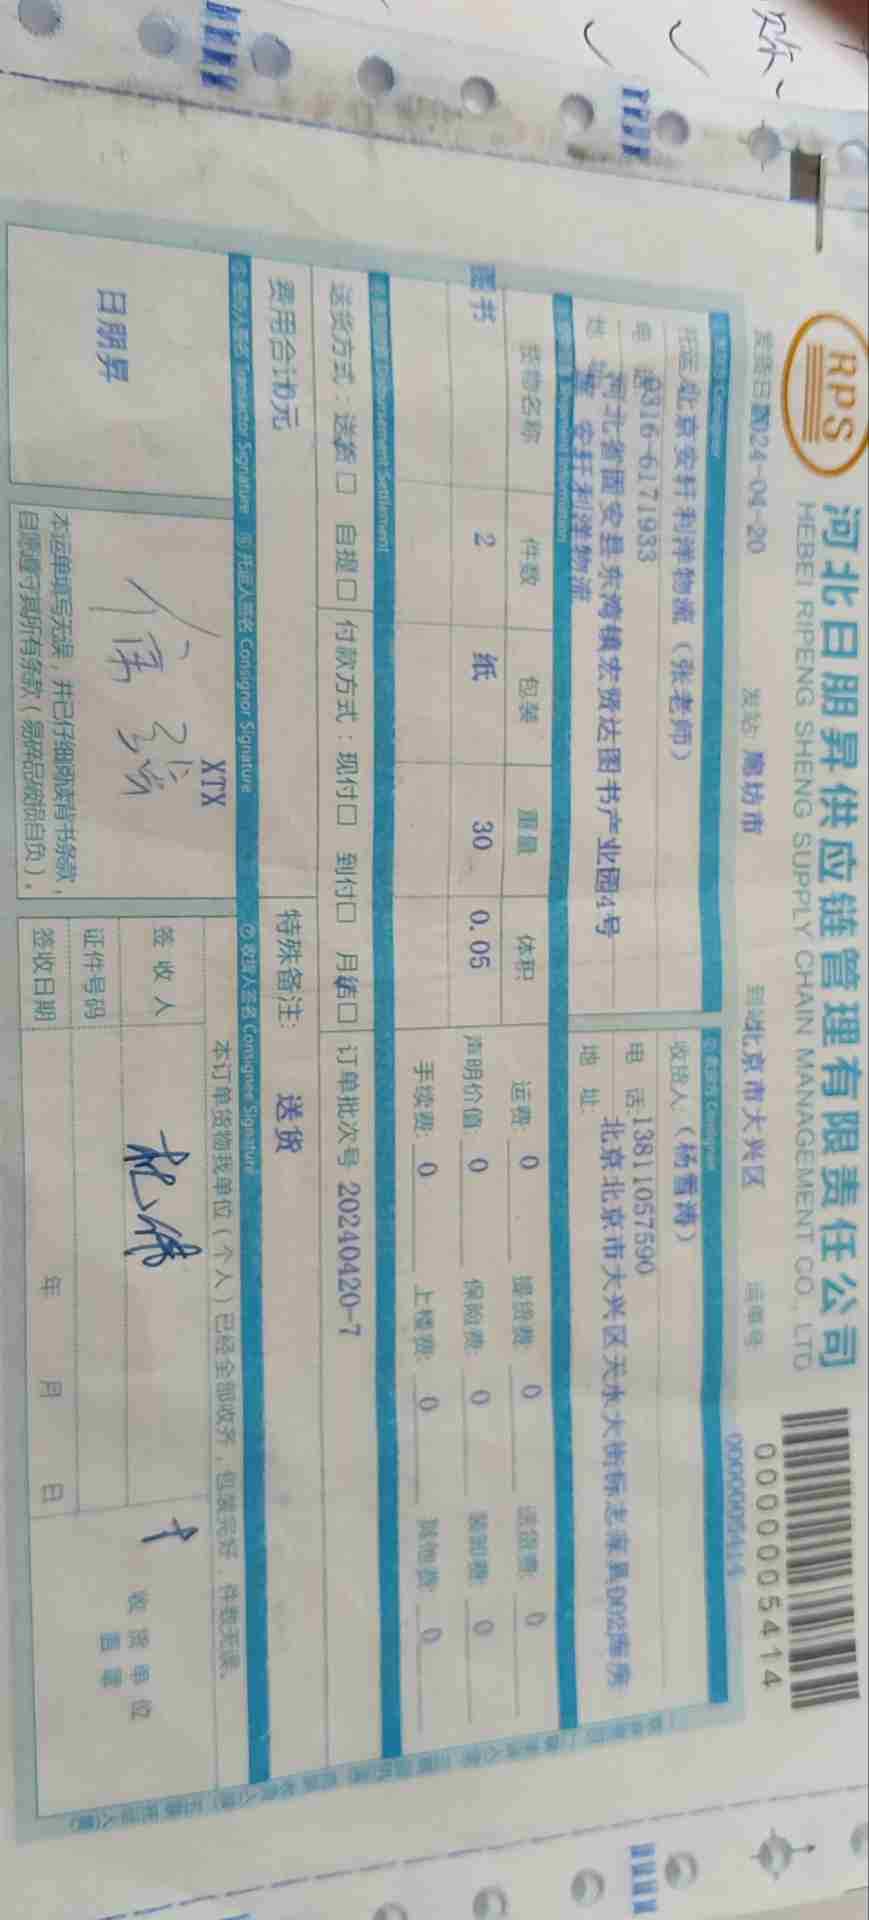 RPS
河北日朋昇供应链管理有限责任公司
HEBEI RIPENG SHENG SUPPLY CHAIN MANAGEMENT CO., LTD
0000005414
0000005414
发货日期2024-04-20 发站:廊坊市 到站北京市大兴区 运单号
Consignor
托运 北京安轩利洋物流 (张老师)
电 话0316-6171933
河北省固安县东湾镇宏贤达图书产业园4号
地 址
安轩利洋物流
Consignee
收货人:(杨雪涛)
电 话:13811057590
地 址: 北京北京市大兴区天水大街标志家具002库房
Shipment Information
货物名称 件数 包装 重量 体积
图书 2 纸 30 0.05
运费: 0 提货费: 0 送货费: 0
声明价值: 0 保险费: 0 装卸费: 0
手续费: 0 上楼费: 0 其他费: 0
Disbursement Settlement
送货方式:送货□ 自提□ 付款方式:现付□ 到付□ 月结□ 订单批次号 20240420-7
费用合计0元 特殊备注: 送货
Transactor Signature ⑥ 托运人签名 Consignor Signature ⑦ 收货人签名 Consignee Signature
日朋昇
XTX
本运单填写无误,并已仔细阅读背书条款,
自愿遵守其所有条款(易碎品破损自负)。
本订单货物我单位(个人)已经全部收齐,包装完好,件数无误。
签收人
证件号码
签收日期 年 月 日
收货单位
盖章